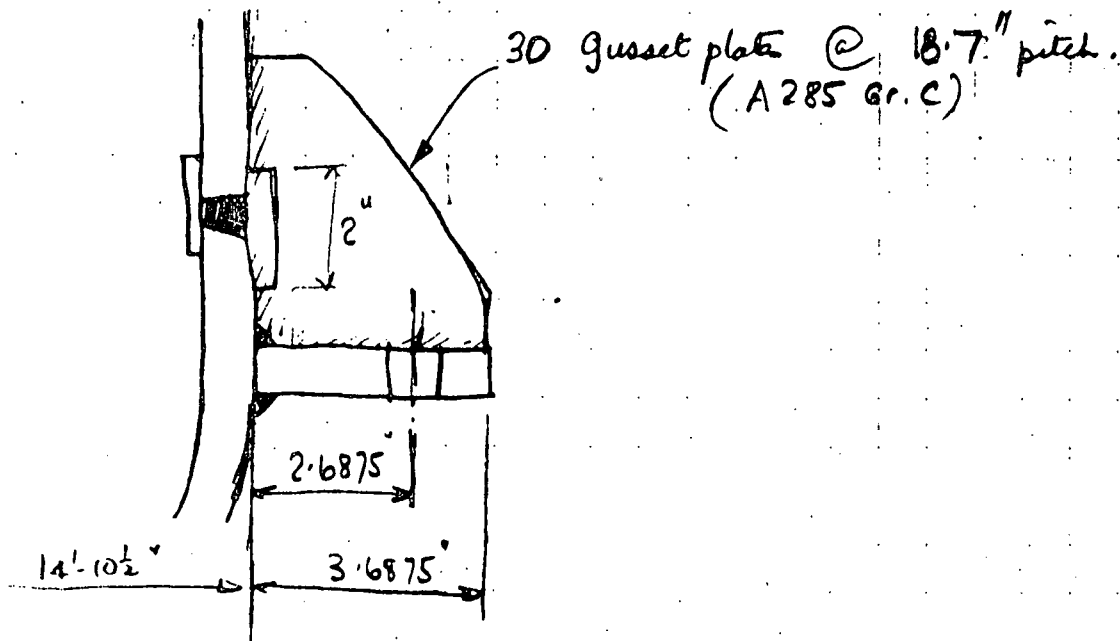 30 Gusset plate @ 18.7" pitch.
(A285 Gr. C)
2"
2.6875"
14'-10½"
3.6875"